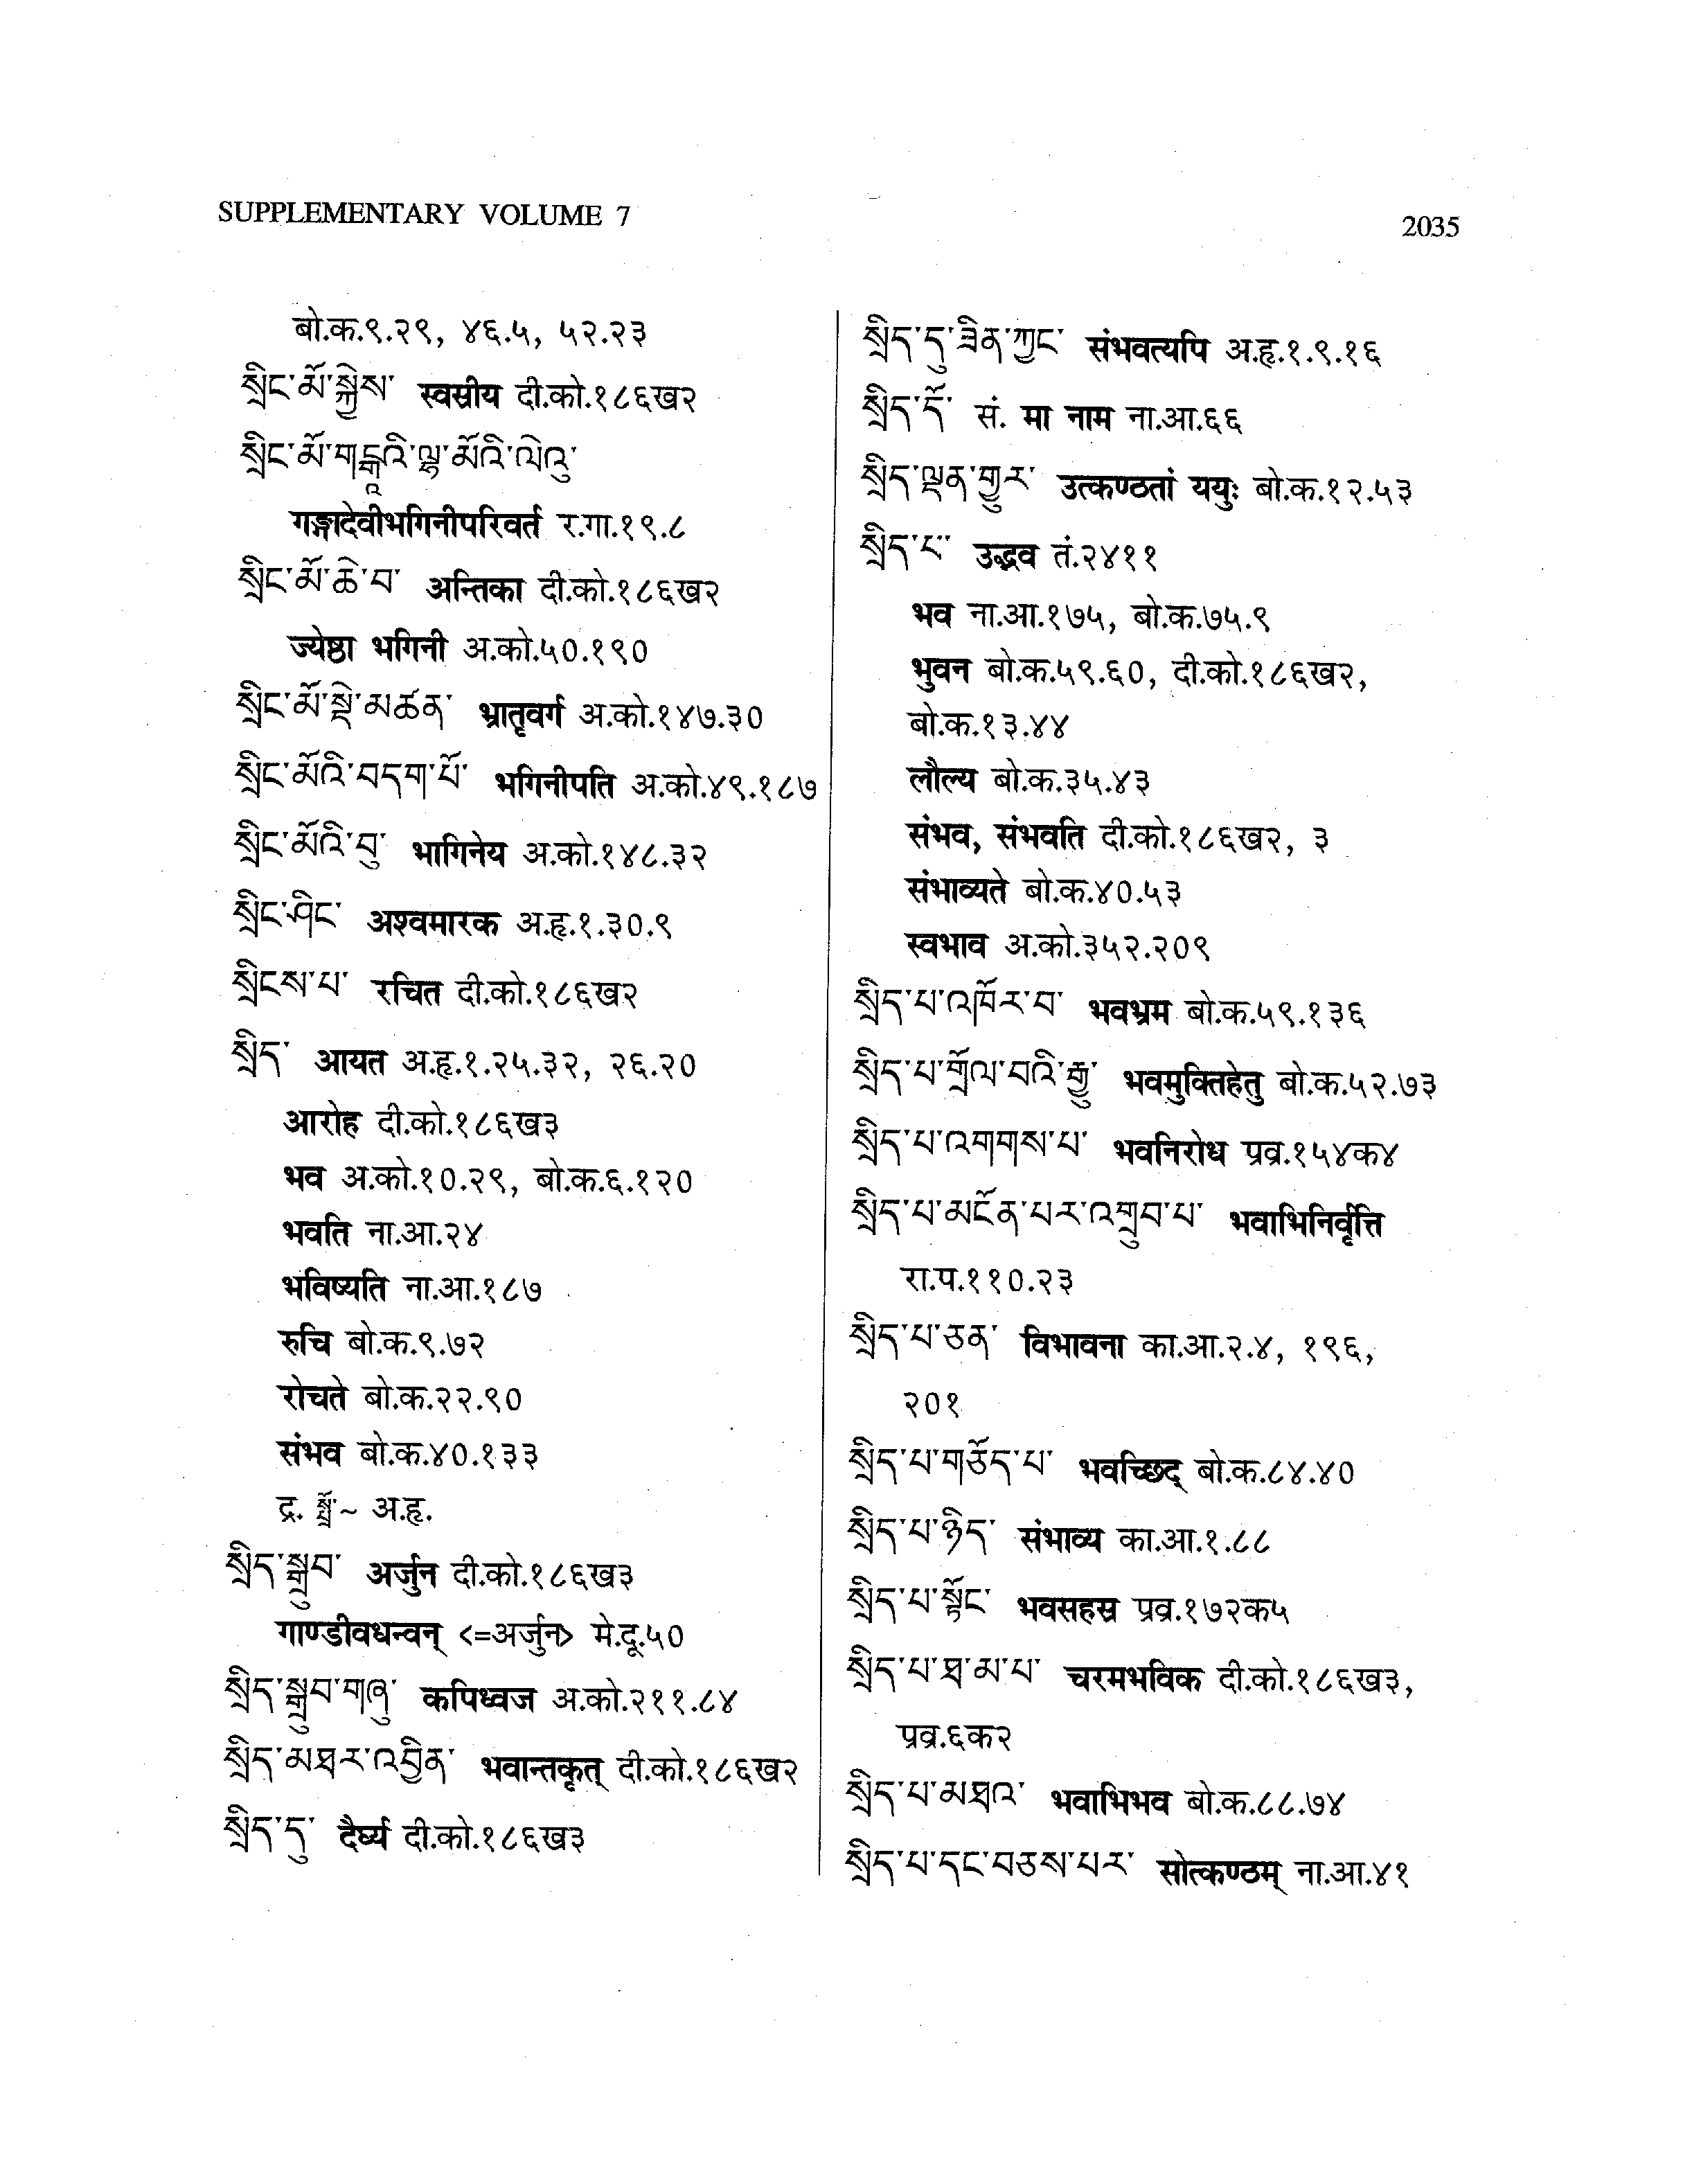 SUPPLEMENTARY VOLUME 7
2035
बो.क.९.२९, ४६.५, ५२.२३
སྲིང་མོ་སྐྱེས་ स्वस्रीय दी.को.१८६ख२
སྲིང་མོ་གངྒཱའི་ལྷ་མོའི་ལེའུ་
गङ्गादेवीभगिनीपरिवर्त र.गा.१९.८
སྲིང་མོ་ཆེ་བ་ अन्तिका दी.को.१८६ख२
ज्येष्ठा भगिनी अ.को.५०.१९०
སྲིང་མོ་སྡེ་མཚན་ भ्रातृवर्ग अ.को.१४७.३०
སྲིང་མོའི་བདག་པོ་ भगिनीपति अ.को.४९.१८७
སྲིང་མོའི་བུ་ भागिनेय अ.को.१४८.३२
སྲིང་ཤིང་ अश्वमारक अ.हृ.१.३०.९
སྲིངས་པ་ रचित दी.को.१८६ख२
སྲིད་ आयत अ.हृ.१.२५.३२, २६.२०
आरोह दी.को.१८६ख३
भव अ.को.१०.२९, बो.क.६.१२०
भवति ना.आ.२४
भविष्यति ना.आ.१८७
रुचि बो.क.९.७२
रोचते बो.क.२२.९०
संभव बो.क.४०.१३३
द्र. ~ अ.हृ.
སྲིད་སྒྲུབ་ अर्जुन दी.को.१८६ख३
गाण्डीवधन्वन् <=अर्जुन> मे.दू.५०
སྲིད་སྒྲུབ་གཞུ་ कपिध्वज अ.को.२११.८४
སྲིད་མཐར་འབྱིན་ भवान्तकृत् दी.को.१८६ख२
སྲིད་དུ་ दैर्घ्य दी.को.१८६ख३
སྲིད་དུ་ཟིན་ཀྱང་ संभवत्यपि अ.हृ.१.९.१६
སྲིད་དོ་ सं. मा नाम ना.आ.६६
སྲིད་ལྡན་གྱུར་ उत्कण्ठतां ययुः बो.क.१२.५३
སྲིད་པ་ उद्भव तं.२४११
भव ना.आ.१७५, बो.क.७५.९
भुवन बो.क.५९.६०, दी.को.१८६ख२,
बो.क.१३.४४
लौल्य बो.क.३५.४३
संभव, संभवति दी.को.१८६ख२, ३
संभाव्यते बो.क.४०.५३
स्वभाव अ.को.३५२.२०९
སྲིད་པ་འཁོར་བ་ भवभ्रम बो.क.५९.१३६
སྲིད་པ་གྲོལ་བའི་རྒྱུ་ भवमुक्तिहेतु बो.क.५२.७३
སྲིད་པ་འགགས་པ་ भवनिरोध प्रव्र.१५४क४
སྲིད་པ་མངོན་པར་འགྲུབ་པ་ भवाभिनिर्वृत्ति
रा.प.११०.२३
སྲིད་པ་ཅན་ विभावना का.आ.२.४, १९६,
२०१
སྲིད་པ་གཅོད་པ་ भवच्छिद् बो.क.८४.४०
སྲིད་པ་ཉིད་ संभाव्य का.आ.१.८८
སྲིད་པ་སྟོང་ भवसहस्र प्रव्र.१७२क५
སྲིད་པ་ཐ་མ་པ་ चरमभविक दी.को.१८६ख३,
प्रव्र.६क२
སྲིད་པ་མཐའ་ भवाभिभव बो.क.८८.७४
སྲིད་པ་དང་བཅས་པར་ सोत्कण्ठम् ना.आ.४१